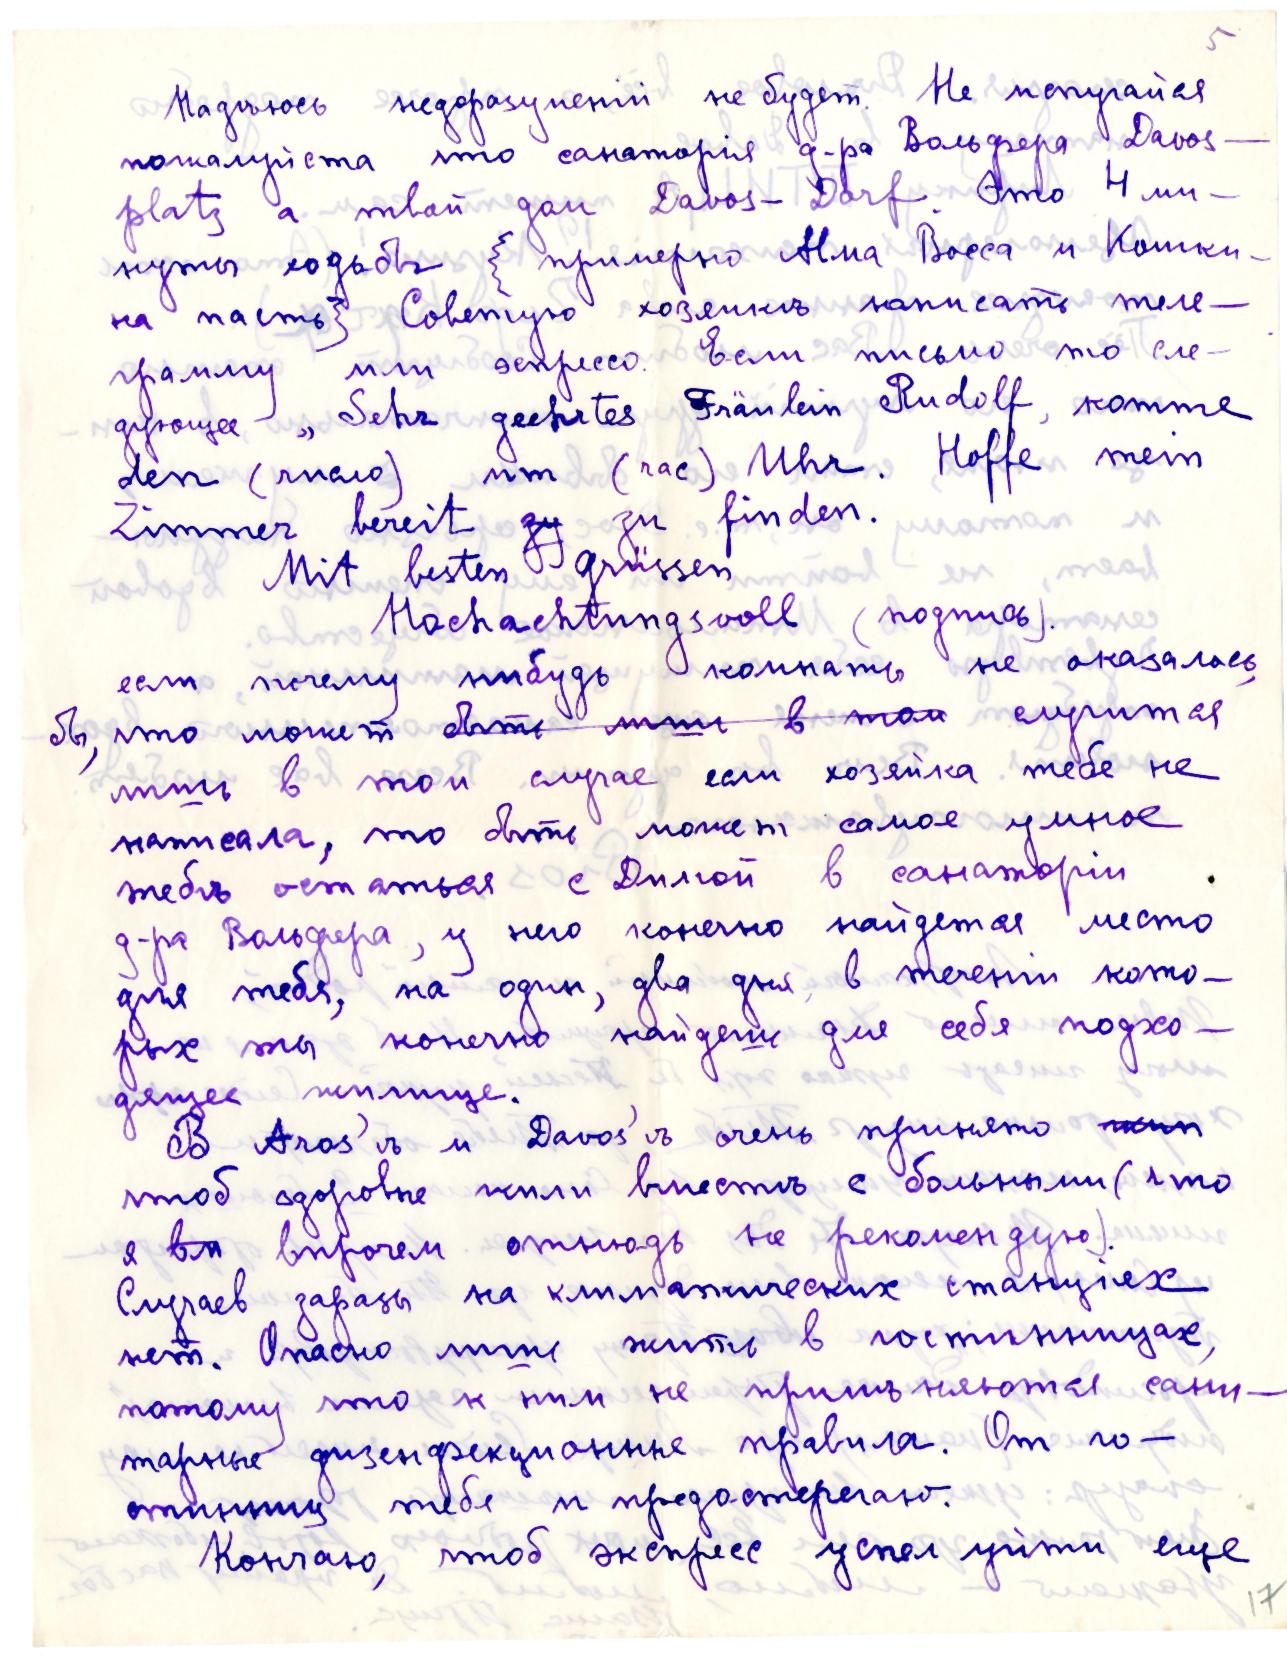 5
Надѣюсь недоразуменій не будет. Не пспугайся
пожалуйста что санаторія д-ра Вольфера Davos—
platz а твой дом Davos–Dorf. Это 4 ми-
нуты ходьбы { примерно Alma Восса и Кошки-
на пасть} Советую хозяикѣ написать теле—
грамму или эспрессо. Если письмо то сле-
дующее „Sehr geehrtes Fräulein Rudolf, komme
den (число) um (час) Uhr. Hoffe mein
Zimmer bereit zu zu finden.
Mit besten grüssen
Hochachtungsvoll (подпись).
если почему нибудь комнаты не оказалось
бы, что может быть лишь в том случится
лишь в том случае если хозяйка тебе не
написала, то быть может самое умное
тебѣ остаться с Димой в санаторіи
д-ра Вольфера, у него конечно найдется место
для тебя, на один, два дня, в теченіи кото—
рых ты конечно найдешь для себя подхо—
дящее жилище.
В Aros'ѣ и Davos'ѣ очень принято жит
чтоб здоровые жили вместѣ с больными (что
я вп впрочем отнюдь не рекомендую).
Случаев заразы на климатических станціях
нет. Опасно лишь жить в гостинницах,
потому что к ним не примѣняются сани—
тарные дизенфекционные правила. От го—
стинниц тебя и предостерегаю.
Кончаю, чтоб экспресс успел уйти еще
17